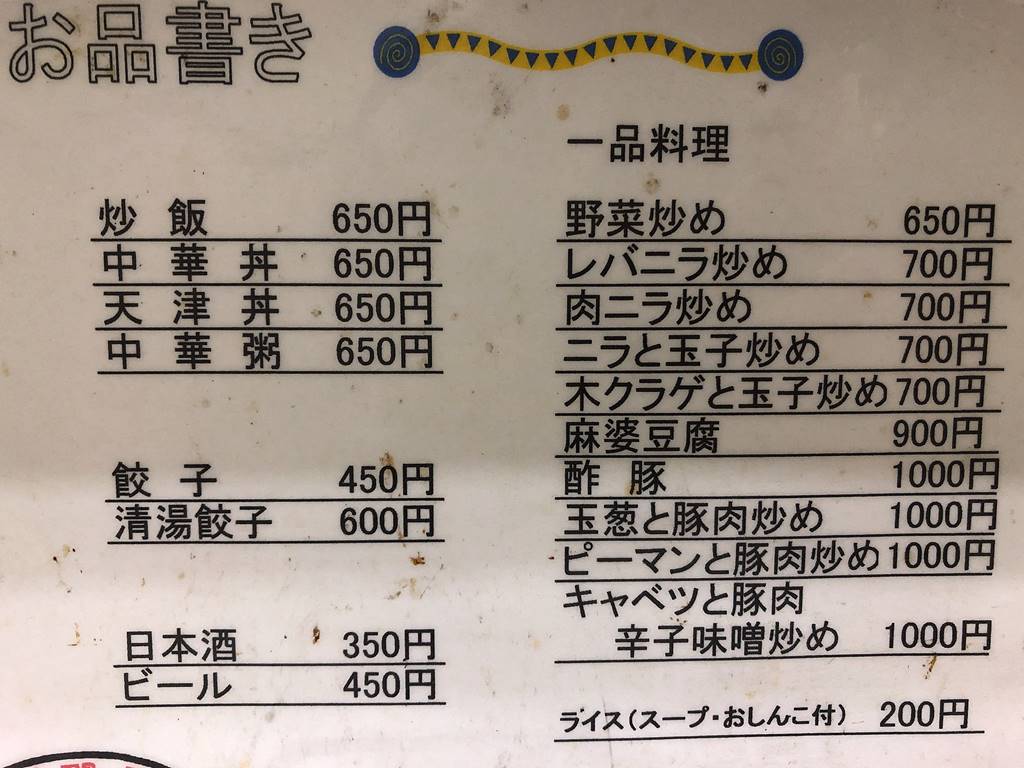 お品書き
炒飯 650円
中華丼 650円
天津丼 650円
中華粥 650円
餃子 450円
清湯餃子 600円
日本酒 350円
ビール 450円
一品料理
野菜炒め 650円
レバニラ炒め 700円
肉ニラ炒め 700円
ニラと玉子炒め 700円
木クラゲと玉子炒め 700円
麻婆豆腐 900円
酢豚 1000円
玉葱と豚肉炒め 1000円
ピーマンと豚肉炒め 1000円
キャベツと豚肉
辛子味噌炒め 1000円
ライス(スープ・おしんこ付) 200円